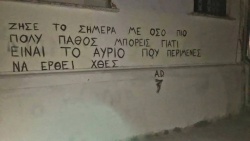 ΖΗΣΕ ΤΟ ΣΗΜΕΡΑ ΜΕ ΟΣΟ ΠΙΟ
ΠΟΛΥ ΠΑΘΟΣ ΜΠΟΡΕΙΣ ΓΙΑΤΙ
ΕΙΝΑΙ ΤΟ ΑΥΡΙΟ ΠΟΥ ΠΕΡΙΜΕΝΕΣ
ΝΑ ΕΡΘΕΙ ΧΘΕΣ
AD